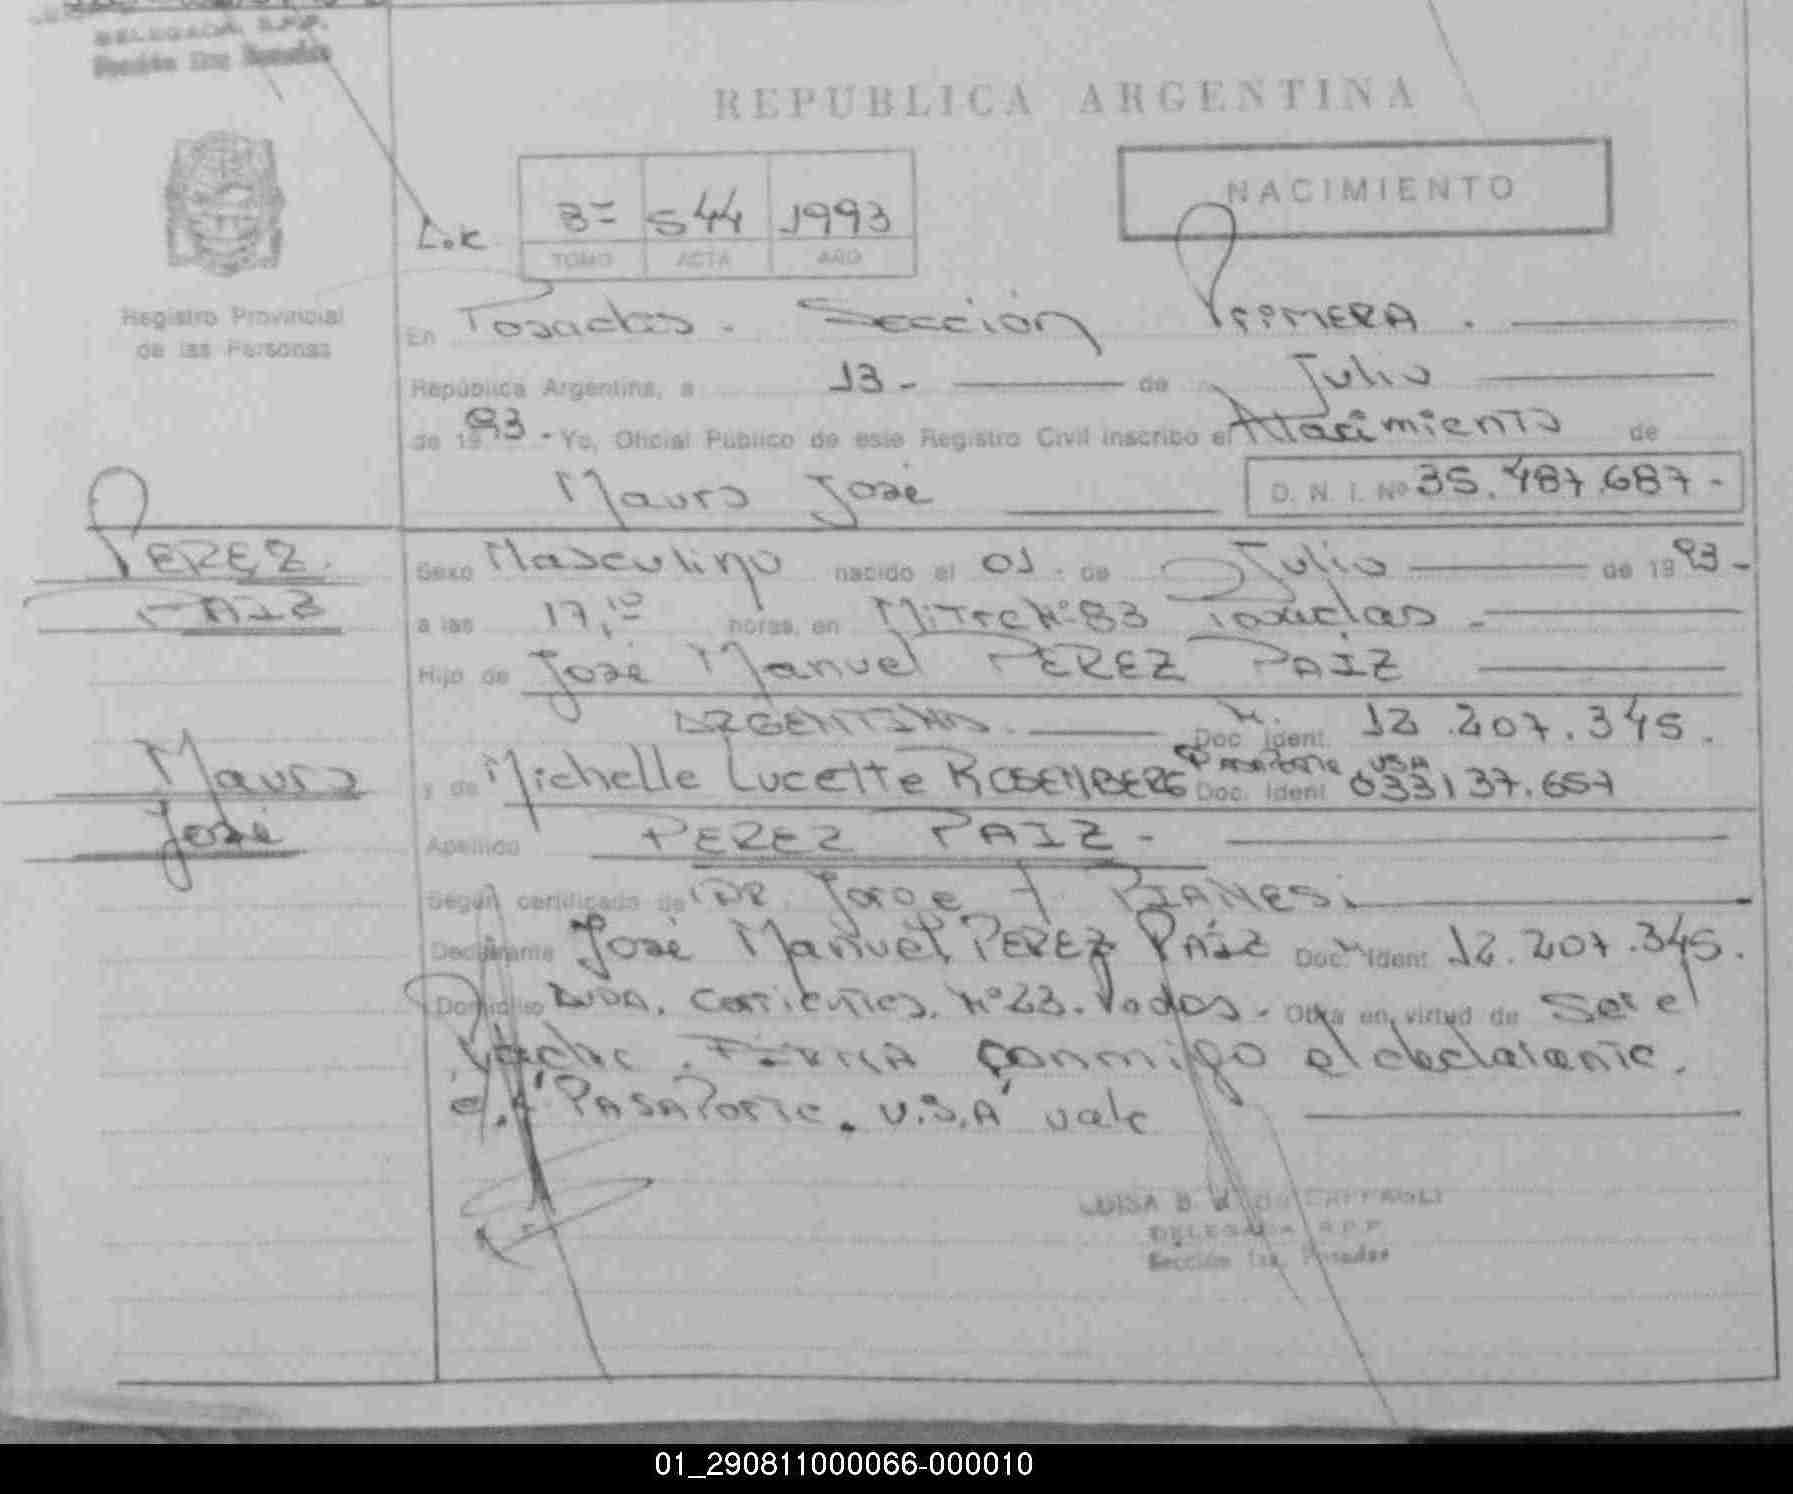 DELEGADA R.P.P.
Sección 1ra Posadas
REPUBLICA ARGENTINA
NACIMIENTO
3= 544 1993
TOMO ACTA AÑO
Registro Provincial
de las Personas
En Posadas. Sección PRIMERA.
República Argentina, a 13 - de Julio
de 1993 - Yo, Oficial Público de este Registro Civil inscribo el Nacimiento de
Mauro José D. N. I. Nº 35.487.687 -
PEREZ
PAIZ
Mauro
José
Sexo Masculino nacido el 01 - de Julio de 1993 -
a las 17,10 horas, en Mitre Nº 83 Posadas -
Hijo de José Manuel PEREZ PAIZ
ARGENTINO. Doc. Ident. 12.207.345.
Pasaporte USA
y de Michelle Lucette ROSENBERG Doc. Ident 033137.657
Apellido PEREZ PAIZ -
Según certificado de DR. Jorge
Declarante José Manuel PEREZ PAIZ Doc. Ident 12.207.345.
Domicilio AVDA. Corrientes. Nº 23. Posdas. Obra en virtud de Ser el
Padre. FIRMA conmigo el declarante.
"PASAPorte. U.S.A" vale
LUISA B.
DELEGADA R.P.P.
Sección 1ra. Posadas
01_290811000066-000010